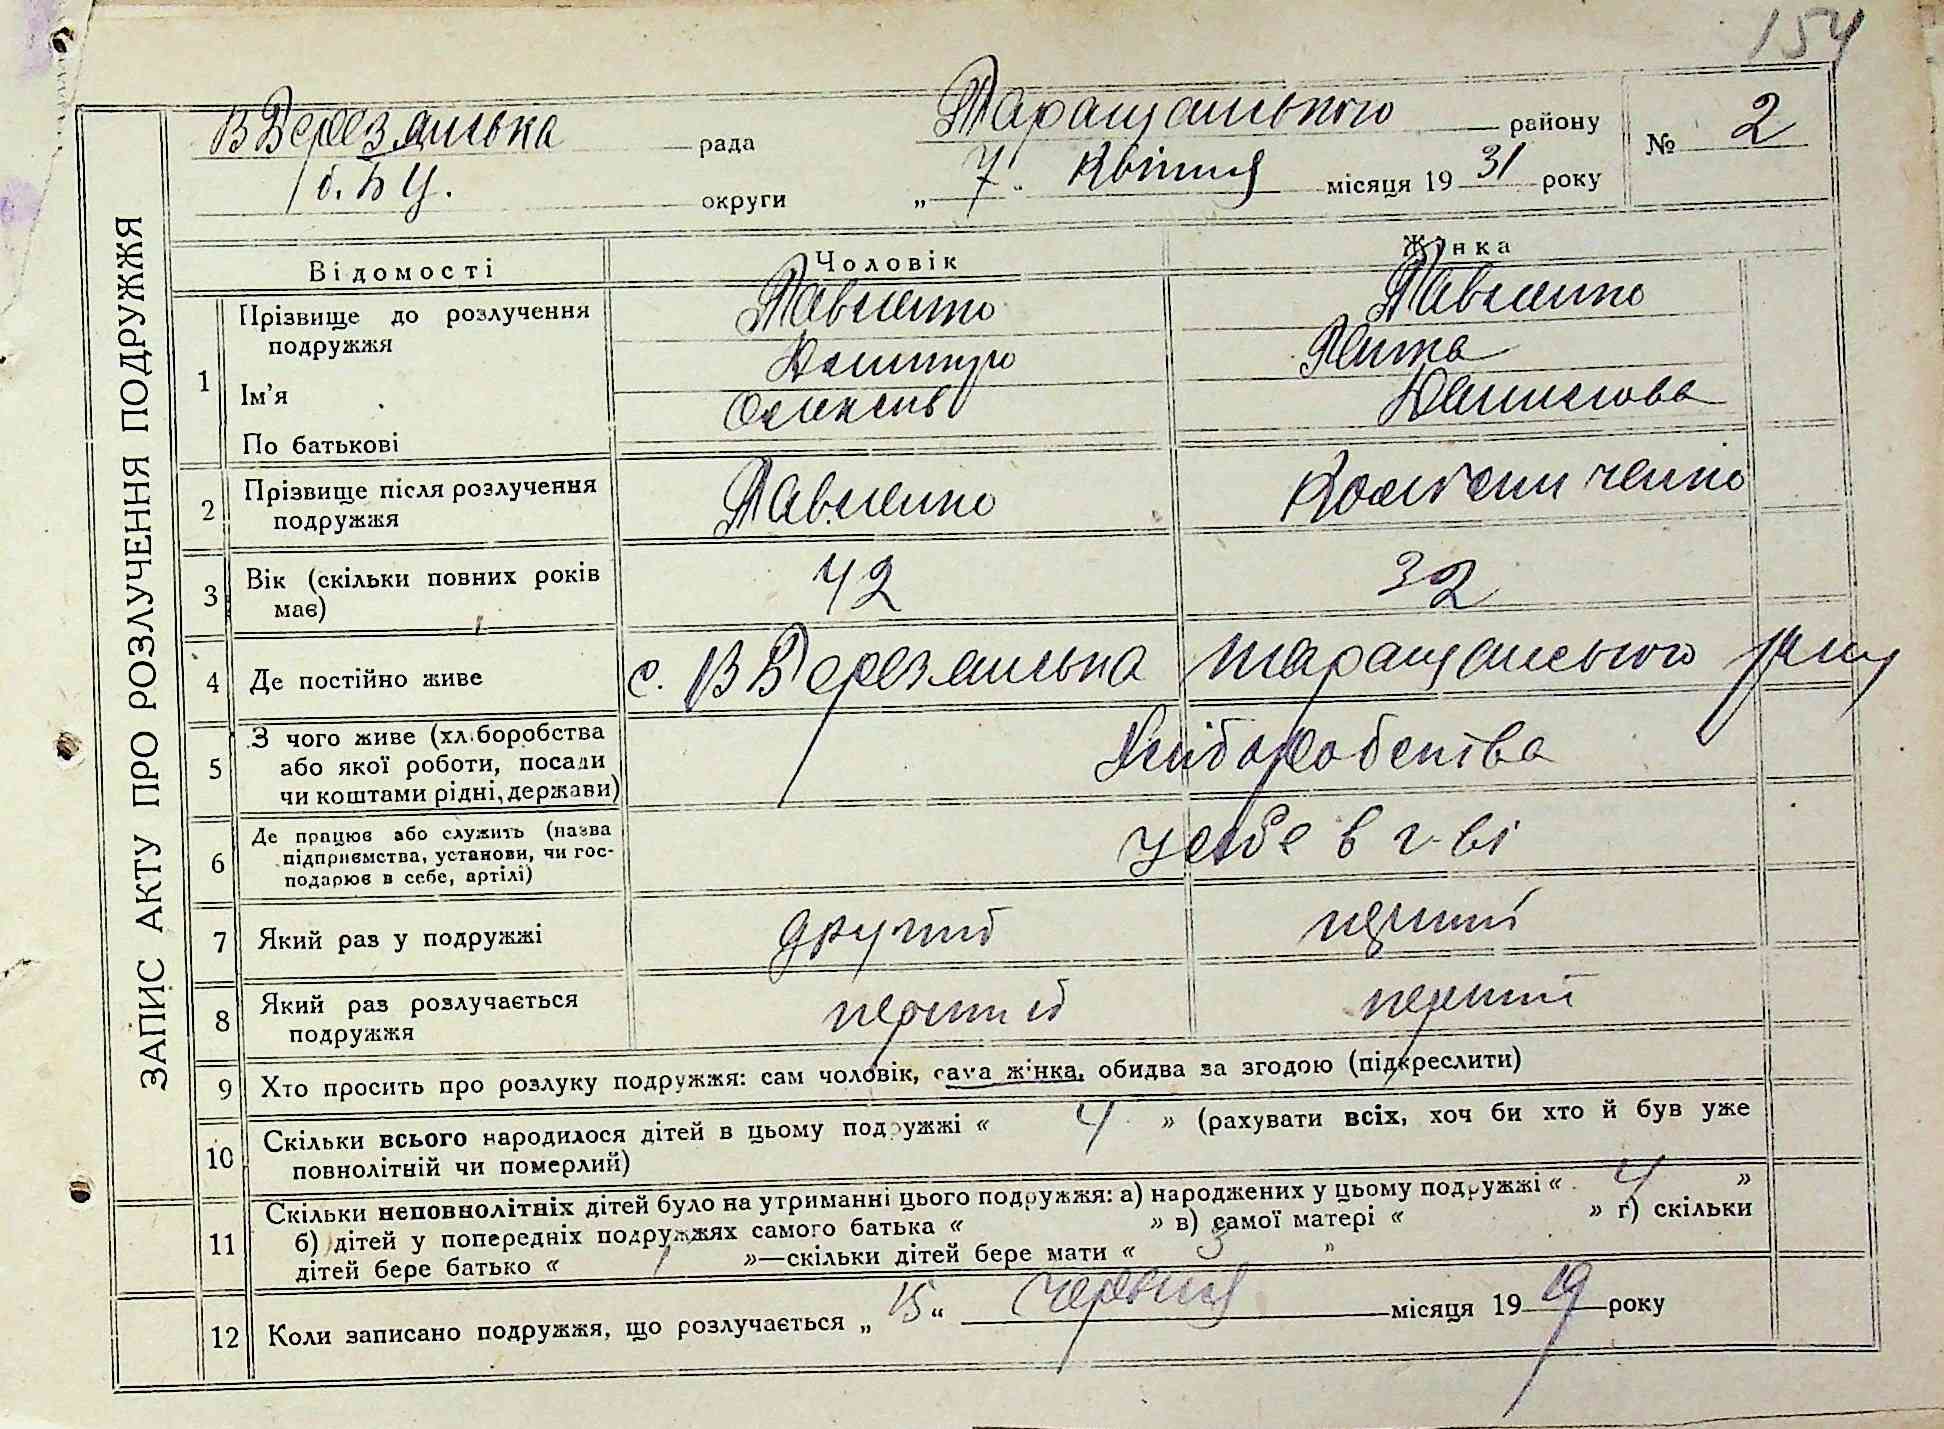 154
ЗАПИС АКТУ ПРО РОЗЛУЧЕННЯ ПОДРУЖЖЯ
В Березянська рада Таращанського району № 2
б. БЦ. округи „ 7 " Квітня місяця 19 31 року
Відомості Чоловік Жінка
1 Прізвище до розлучення подружжя Павленко Павленко
Ім'я Дмитро
По батькові Олексієв Данилова
2 Прізвище після розлучення подружжя Павленко
3 Вік (скільки повних років має) 42 32
4 Де постійно живе с. В Березянська Таращанського р-ну
5 З чого живе (хліборобства або якої роботи, посади чи коштами рідні, держави) Хліборобства
6 Де працює або служить (назва підприємства, установи, чи господарює в себе, артілі) у себе в г-ві
7 Який раз у подружжі другий перший
8 Який раз розлучається подружжя перший перший
9 Хто просить про розлуку подружжя: сам чоловік, сама жінка, обидва за згодою (підкреслити)
10 Скільки всього народилося дітей в цьому подружжі « 4 » (рахувати всіх, хоч би хто й був уже
повнолітній чи померлий)
11 Скільки неповнолітніх дітей було на утриманні цього подружжя: а) народжених у цьому подружжі « 4 »
б) дітей у попередніх подружжях самого батька « » в) самої матері « » г) скільки
дітей бере батько « 1 »—скільки дітей бере мати « 3 »
12 Коли записано подружжя, що розлучається „ 15 " червня місяця 19 19 року